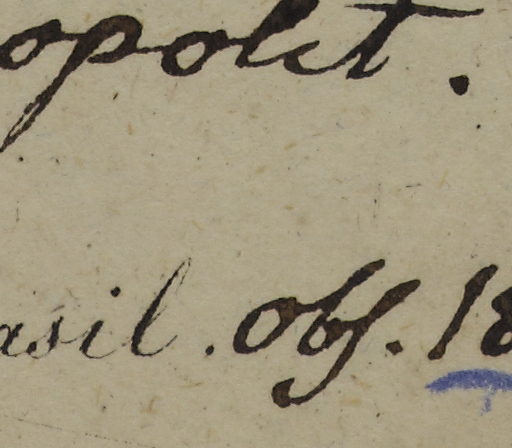 opolit.
asil. Obs. 18